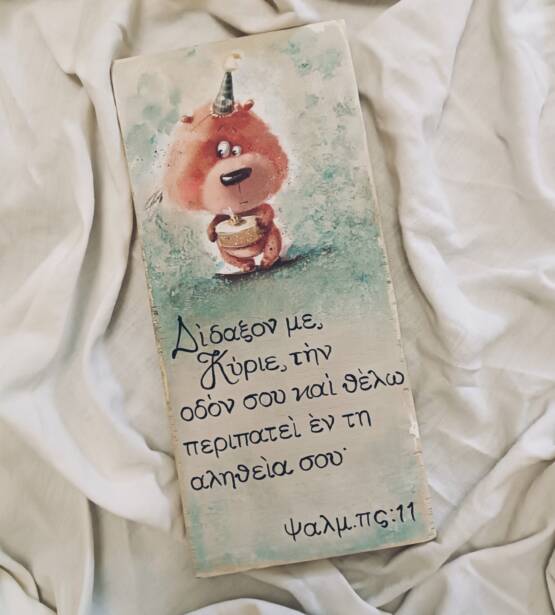 Δὶδαξον με,
Κύριε, τὴν
οδὸν σου καὶ θὲλω
περιπατεὶ ὲν τη
αληθεὶα σου·
ψαλμ.πς:11